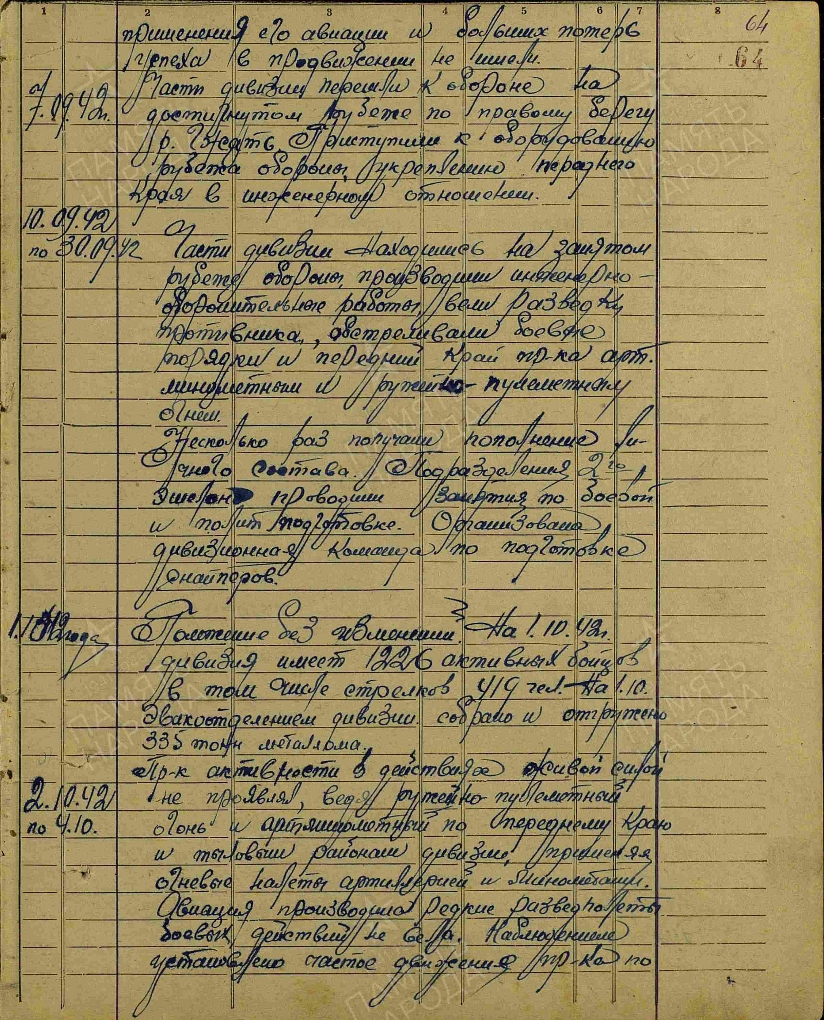 1 2 3 4 5 6 7 8
применения его авиации и больших потерь
успеха в продвижении не имели.
64
64
7.09.42г.
Части дивизии перешли к обороне на
достигнутом рубеже по правому берегу
р. Гжать. Приступили к оборудованию
рубежа обороны, укреплению переднего
края в инженерном отношении.
10.09.42
по 30.09.42
Части дивизии находились на занятом
рубеже обороны, производили инженерно-
оборонительные работы, вели разведку
противника, обстреливали боевые
порядки и передний край пр-ка арт.
минометным и ружейно-пулеметным
огнем.
Несколько раз получали пополнение ли-
чного состава. Подразделения 2го
эшелона проводили занятия по боевой
и полит подготовке. Организована
дивизионная команда по подготовке
снайперов.
года
Положение без изменений. На 1.10.42г.
дивизия имеет 1226 активных бойцов
в том числе стрелков 419 чел. На 1.10.
Эвакоотделением дивизии собрано и отгружено
335 тонн металлома.
Пр-к активности в действиях живой силой
2.10.42
по 4.10.
не проявлял, ведя ружейно-пулеметный
огонь и артминометный по переднему краю
и тыловым районам дивизии, применяя
огневые налеты артиллерией и минометами.
Авиация производила редкие разведполеты
боевых действий не вела. Наблюдением
установлено частое движение пр-ка по
ПАМЯТЬ НАРОДА